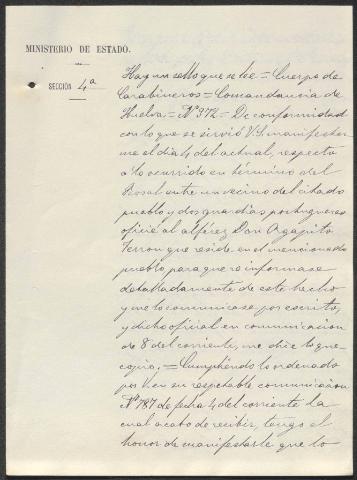 MINISTERIO DE ESTADO.
SECCIÓN 4ª
Hay un sello que se lee = Cuerpo de
Carabineros = Comandancia de
Huelva = Nº 972 = De conformidad
con lo que se sirvió V.S. manifestar
me el dia 4 del actual, respecto
a lo ocurrido en término del
Rosal entre un vecino del citado
pueblo y dos guardias portugueses
oficié al alférez Don Agapito
Terron que reside en el mencionado
pueblo para que se informase
detalladamente de este hecho
y me lo comunicase por escrito,
y dicho oficial en comunicacion
de 8 del corriente, me dice lo que
copio: = Cumpliendo lo ordenado
por V. en su respetable comunicacion
Nº 787 de fecha 4 del corriente la
cual acabo de recibir, tengo el
honor de manifestarle que lo